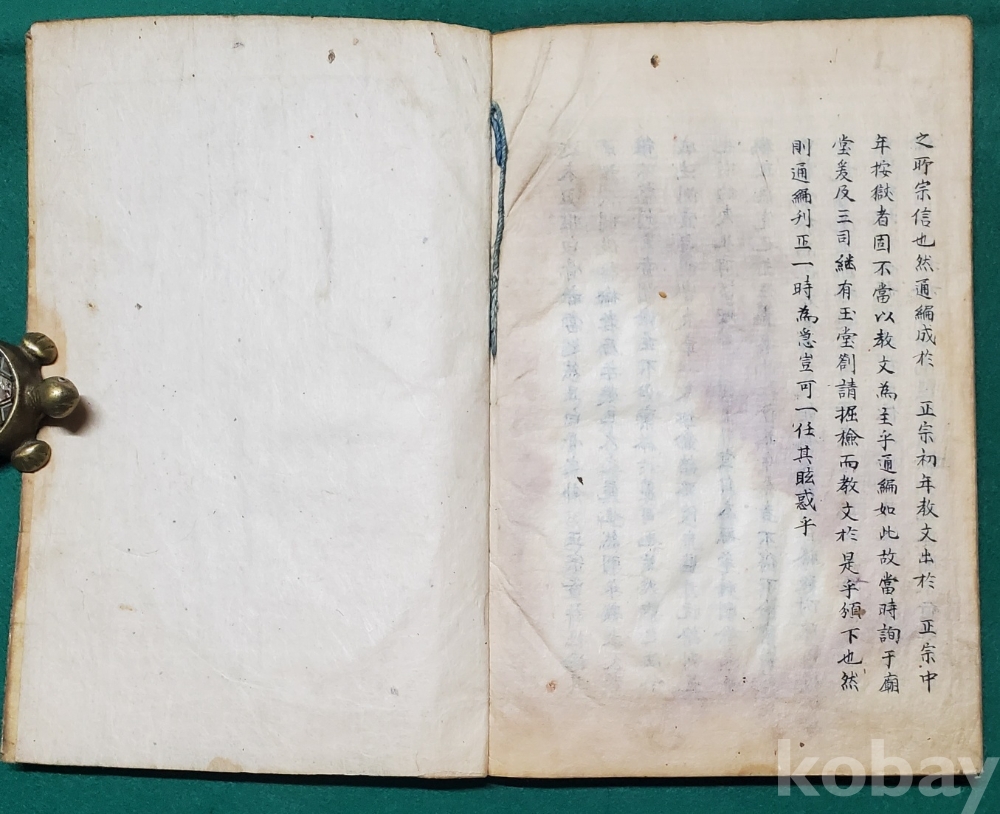 之所宗信也然通編成於 正宗初年教文出於 正宗中
年按獄者固不當以教文為主乎通編如此故當時詢于廟
堂爰及三司継有玉堂劄請掘檢而教文於是乎頒下也然
則通編刋正一時為急豈可一任其眩惑乎
kobay